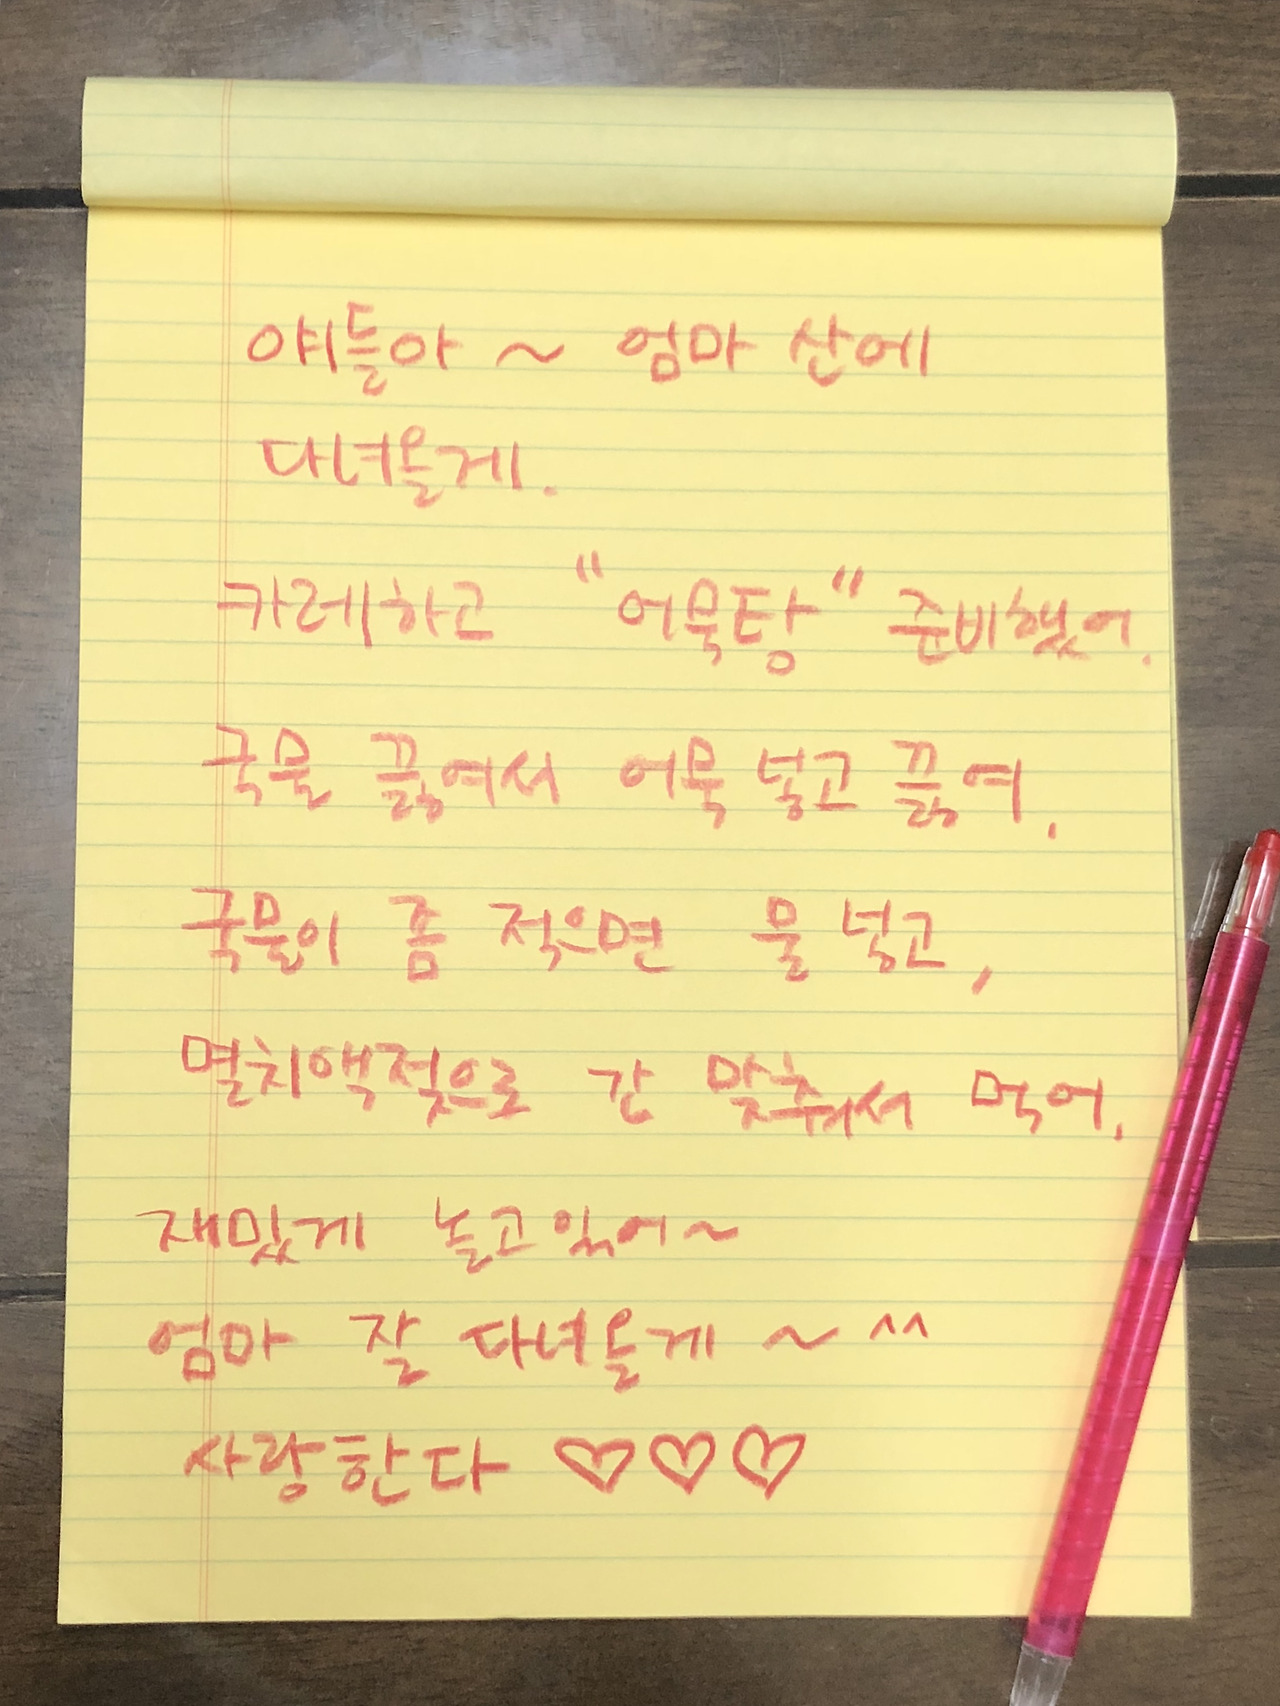 얘들아 ~ 엄마 산에
다녀올게.
카레하고 "어묵탕" 준비했어.
국물 끓여서 어묵 넣고 끓여.
국물이 좀 적으면 물 넣고,
멸치액젓으로 간 맞춰서 먹어.
재밌게 놀고있어~
엄마 잘 다녀올게 ~ ^^
사랑한다 ♡♡♡